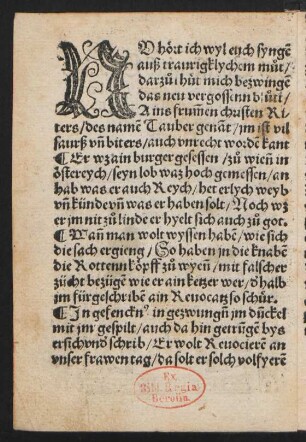 NU höꝛt ich wyl euch syngẽ
auß traurigklychem můt/
darzů thůt mich bezwingẽ
das neu vergossenn blůtt/
Ains frum̃en chꝛisten Ri
ters/des namẽ Tauber genãt/jm ist vil
saurß vñ biters/auch vnrecht woꝛdẽ kant
¶ Er wz ain burger gesessen/zů wieñ in
östereych/seyn lob waz hoch gemessen/an
hab was er auch Reych/het erlych weyb
vñ kündeꝛ vñ was er haben solt/Noch wz
er jm nit zů linde er hyelt sich auch zů got.
¶ Wañ man wolt wyssen habẽ/wie sich
die sach ergieng/So haben jn die knabẽ
die Rottenn köꝛff zů wyeñ/mit falscher
zücht bezügẽ wie er ain ketzer wer/dhalb
jm fürgeschribẽ ain Reuocatz so schür.
¶ In gefencknꝰ in gezwungñ jm dückel
mit jm gespilt/auch da hin getrügẽ bys
er sich vnd schrib/Er wolt Reuocierẽ an
vnser frawen tag/da solt er solch volfyerẽ
Ex
Bibl. Regia
Berolin